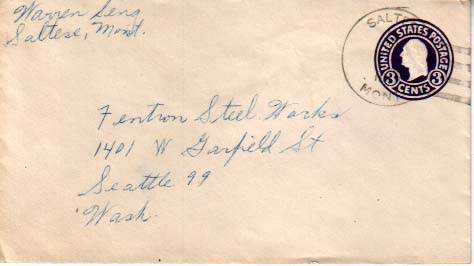 Warren Seng
Saltese, Mont.
SALT
MON
UNITED STATES POSTAGE
3 CENTS 3
Fentron Steel Works
1401 W Garfield St
Seattle 99
Wash.